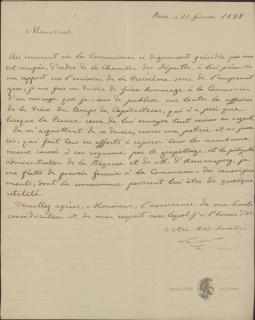 Paris ce 21 février 1838
Monsieur
Au moment où la Commission si dignement présidée par vous
est occupée d'ordre de la Chambre des Députés, à lui présenter
un rapport sur l'émission de la troisième série de l'emprunt
grec, je me fais un devoir de faire hommage à la Commission
d'un ouvrage que je viens de publier sur toutes les affaires
de la Grèce du temps de Capodistrias, qui n'a péri que
lorsque la France
En m'acquittant de ce devoir, envers ma patrie et
qui fait tous ses efforts à réparer tous les
causés à son royaume par le gaspillage et la
administration de la Régence et de M. d'Armansperg, je
me flatte de pouvoir fournir à la Commission des renseigne-
ments, dont la connaissance pourrait lui être de quelque
utilité.
Veuillez agréer, Monsieur, l'assurance de ma haute
considération et de mon respect avec lequel j'ai l'honneur d'être
votre très humble